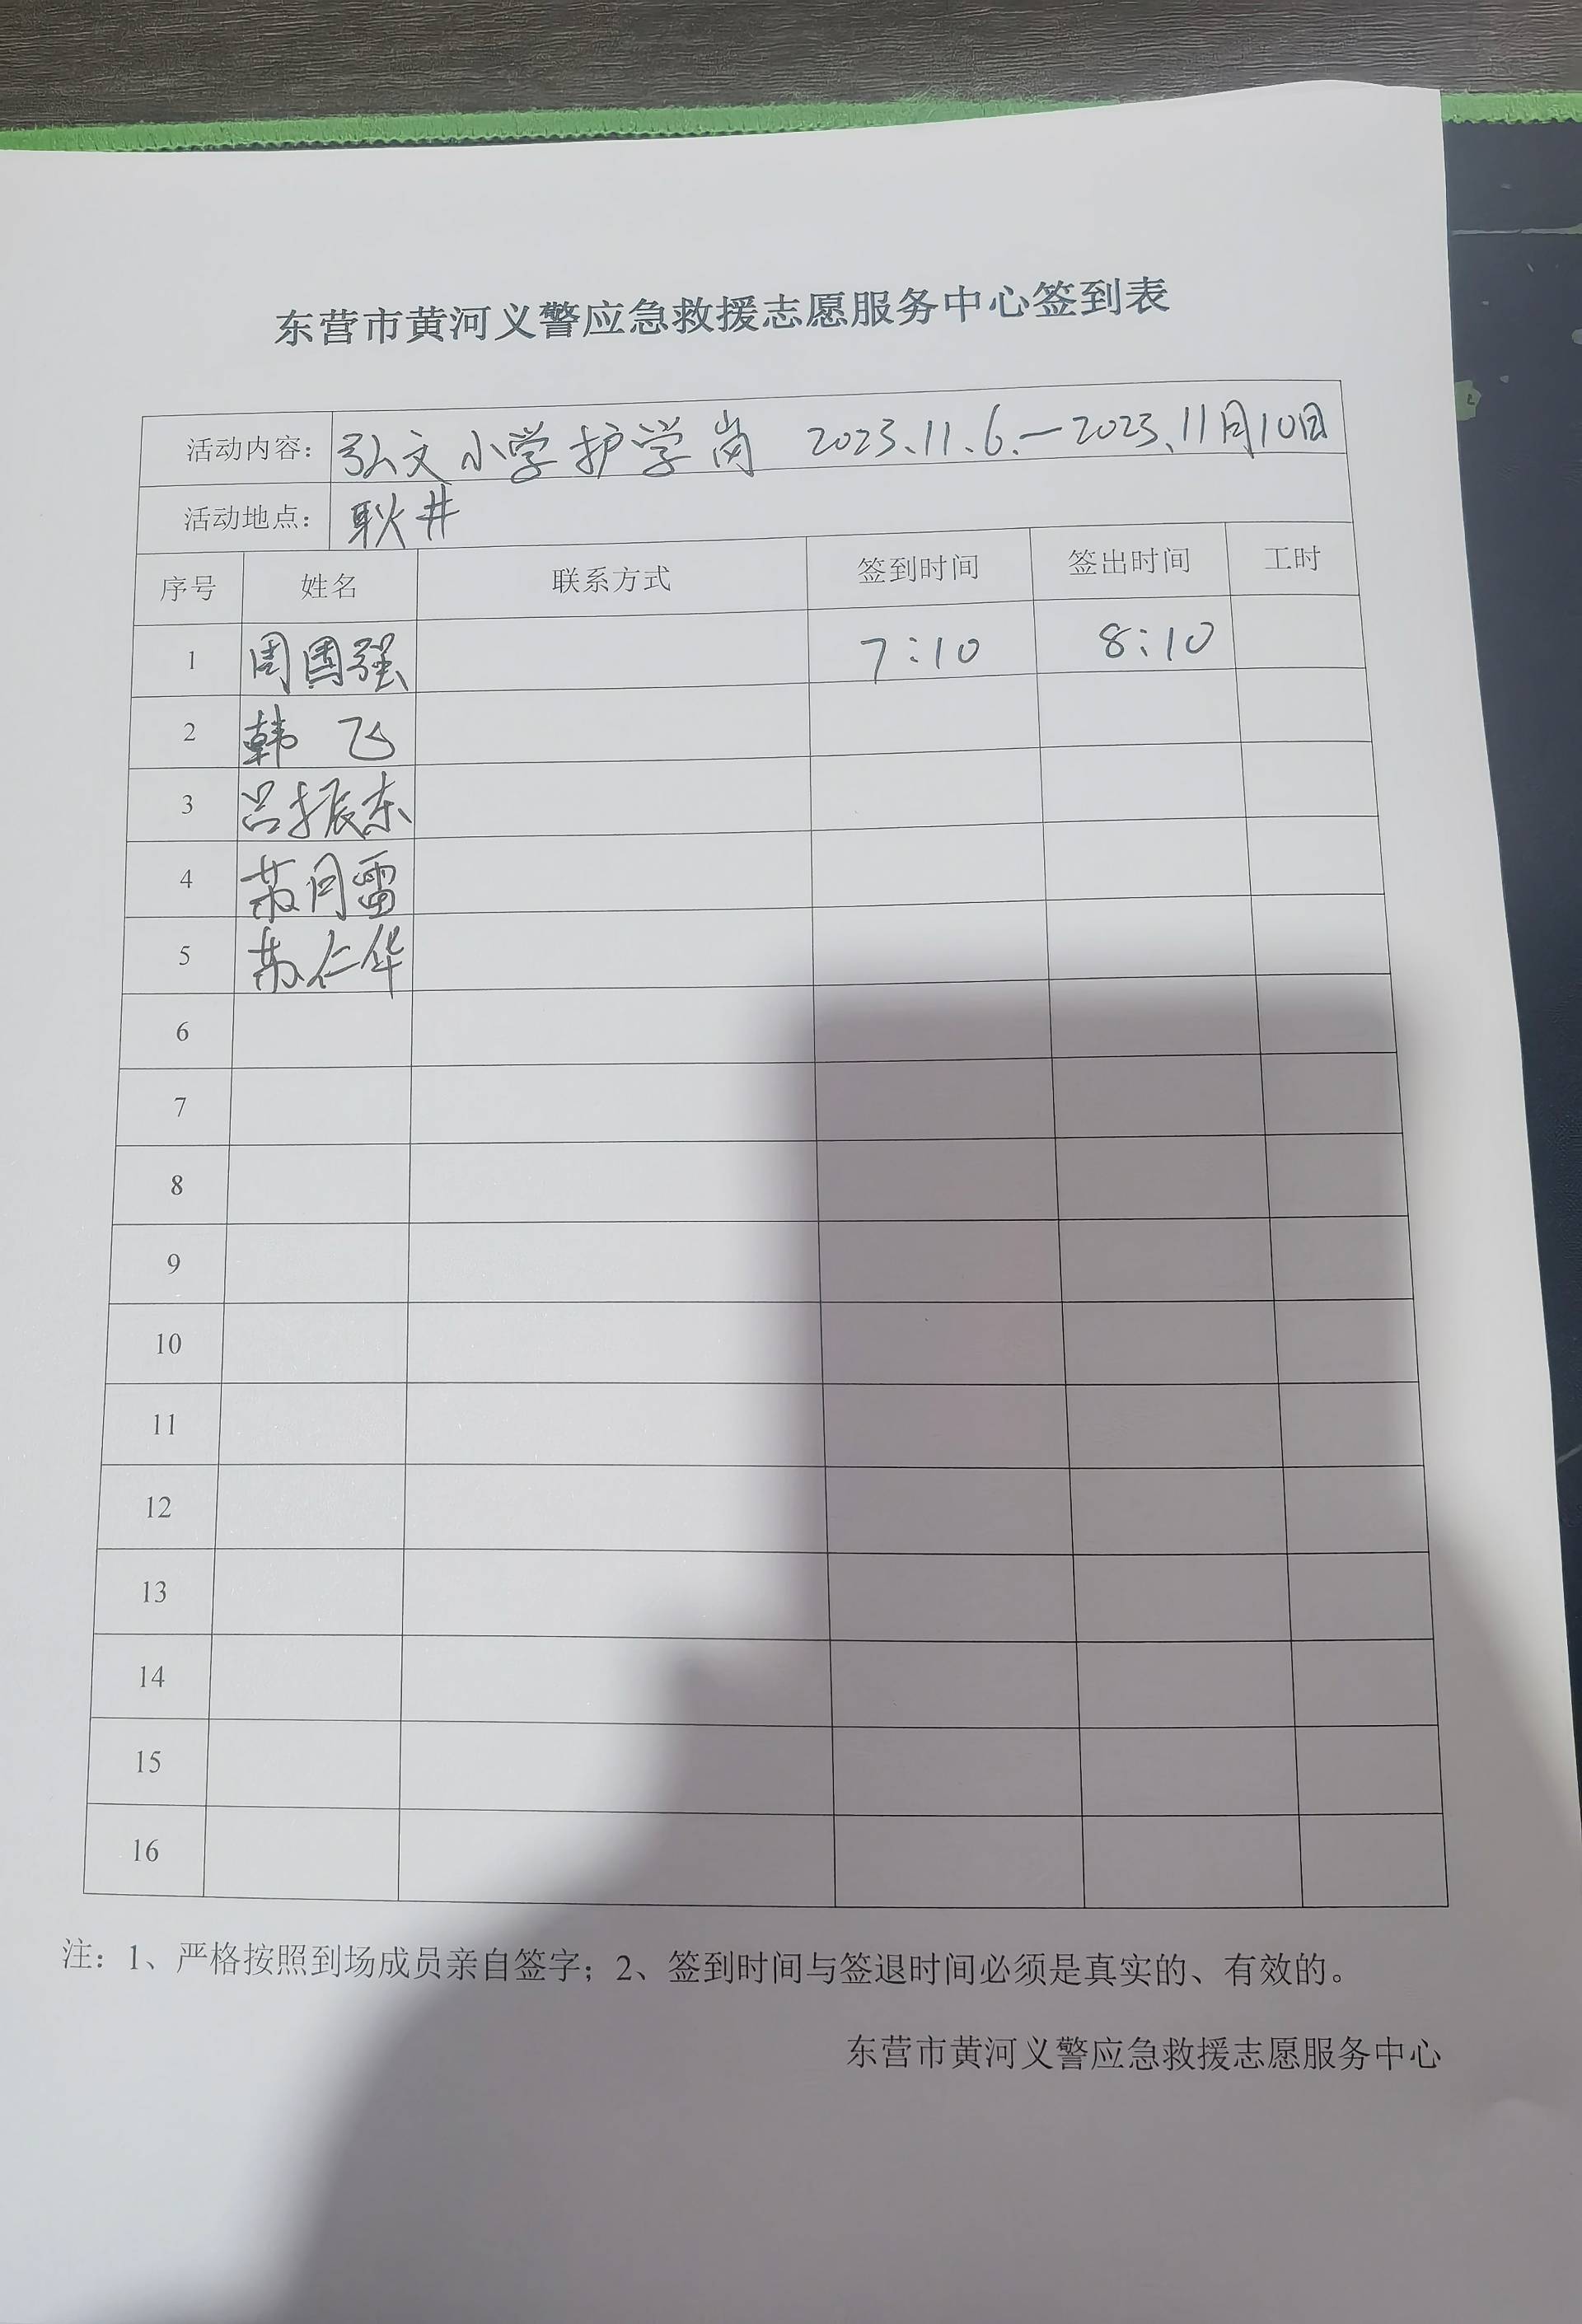 东营市黄河义警应急救援志愿服务中心签到表
活动内容： 弘文小学护学岗 2023.11.6.—2023.11月10日
活动地点： 耿井
序号 姓名 联系方式 签到时间 签出时间 工时
1 周国强 7:10 8:10
2 韩飞
3 吕振东
4 苏月雷
5 苏仁华
6
7
8
9
10
11
12
13
14
15
16
注：1、严格按照到场成员亲自签字；2、签到时间与签退时间必须是真实的、有效的。
东营市黄河义警应急救援志愿服务中心